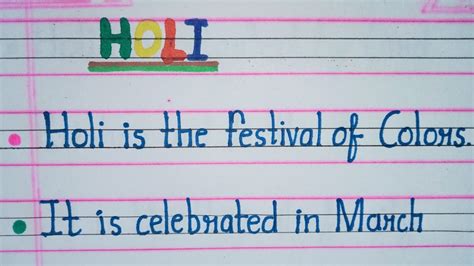 HOLI
Holi is the festival of Colors.
It is celebrated in March